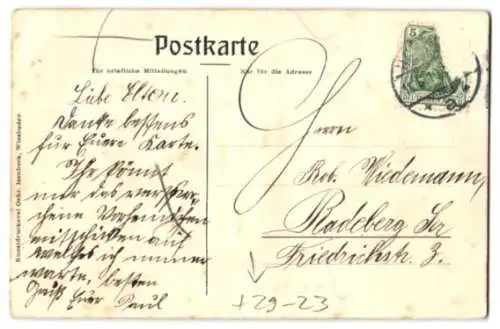 Postkarte
Für briefliche Mitteilungen
Nur für die Adresse
Liebe Eltern.
Danke bestens
für Euere Karte.
Ihr könnt
mir das verspro-
chene
mitschicken auf
welches ich immer
warte, besten
Gruß Euer Paul
Herrn
Rob. Wiedemann,
Radeberg Sa
Friedrichstr. 3.
+29-23
5
Kunstdruckerei Gebr. Isenbeck, Wiesbaden